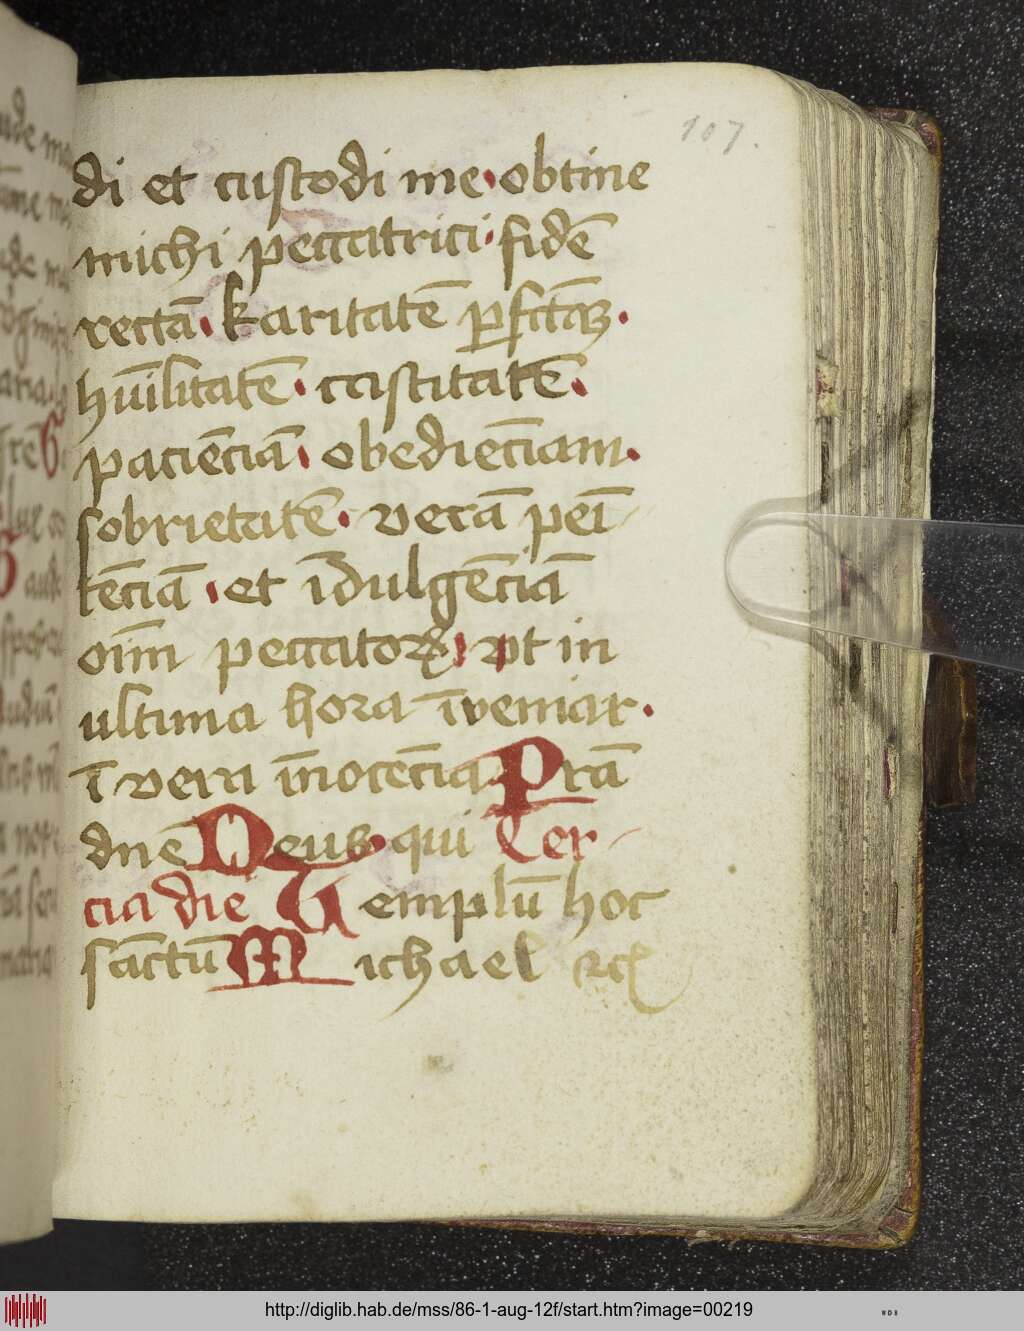 107.
di et custodi me. obtine
michi peccatrici. fidē
rectā. karitatē ꝑfctāqȝ.
hūīlitatē. castitatē.
paciēciā. obediēciam.
sobrietatē. verā pēi
tēciā. et īdulgēciā
oīm peccatoꝝ. vt in
ultima hora īveniar.
ī veri īnocēcia Prā
dnē Deus. qui Ter-
cia die Templū hoc
sāctū Michael ⁊cꝭ
http://diglib.hab.de/mss/86-1-aug-12f/start.htm?image=00219